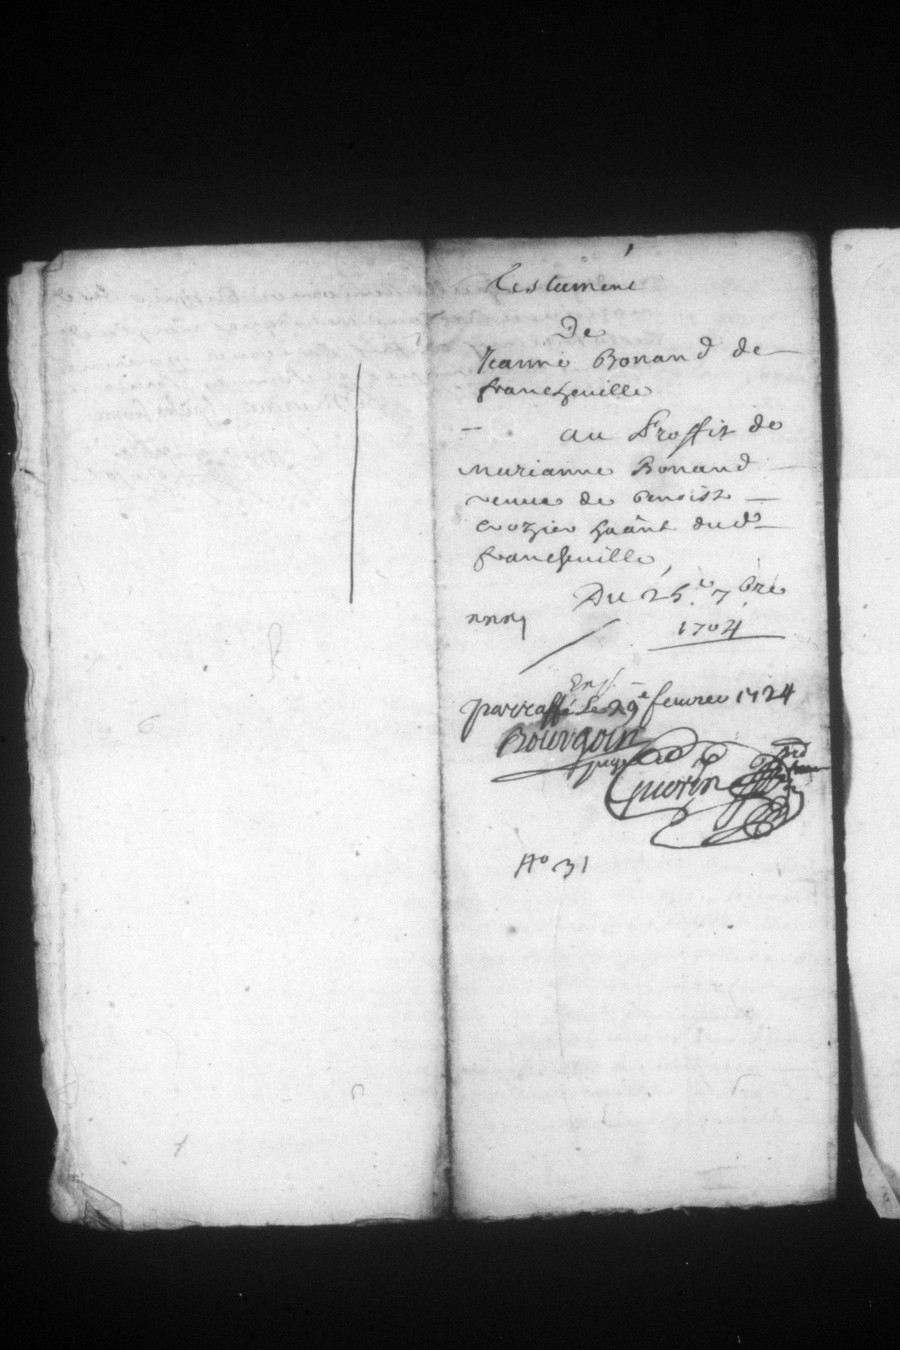 Testament
De
Jeanne Bonand de
francheville
au Proffit de
Marianne Bonand
venue de Benoist
Crozier haânt dud
francheville
Du 25.e 7bre
1704
parraffé Le 29e feuvrer 1724
Bourgoin
juge
Guerin
No 31